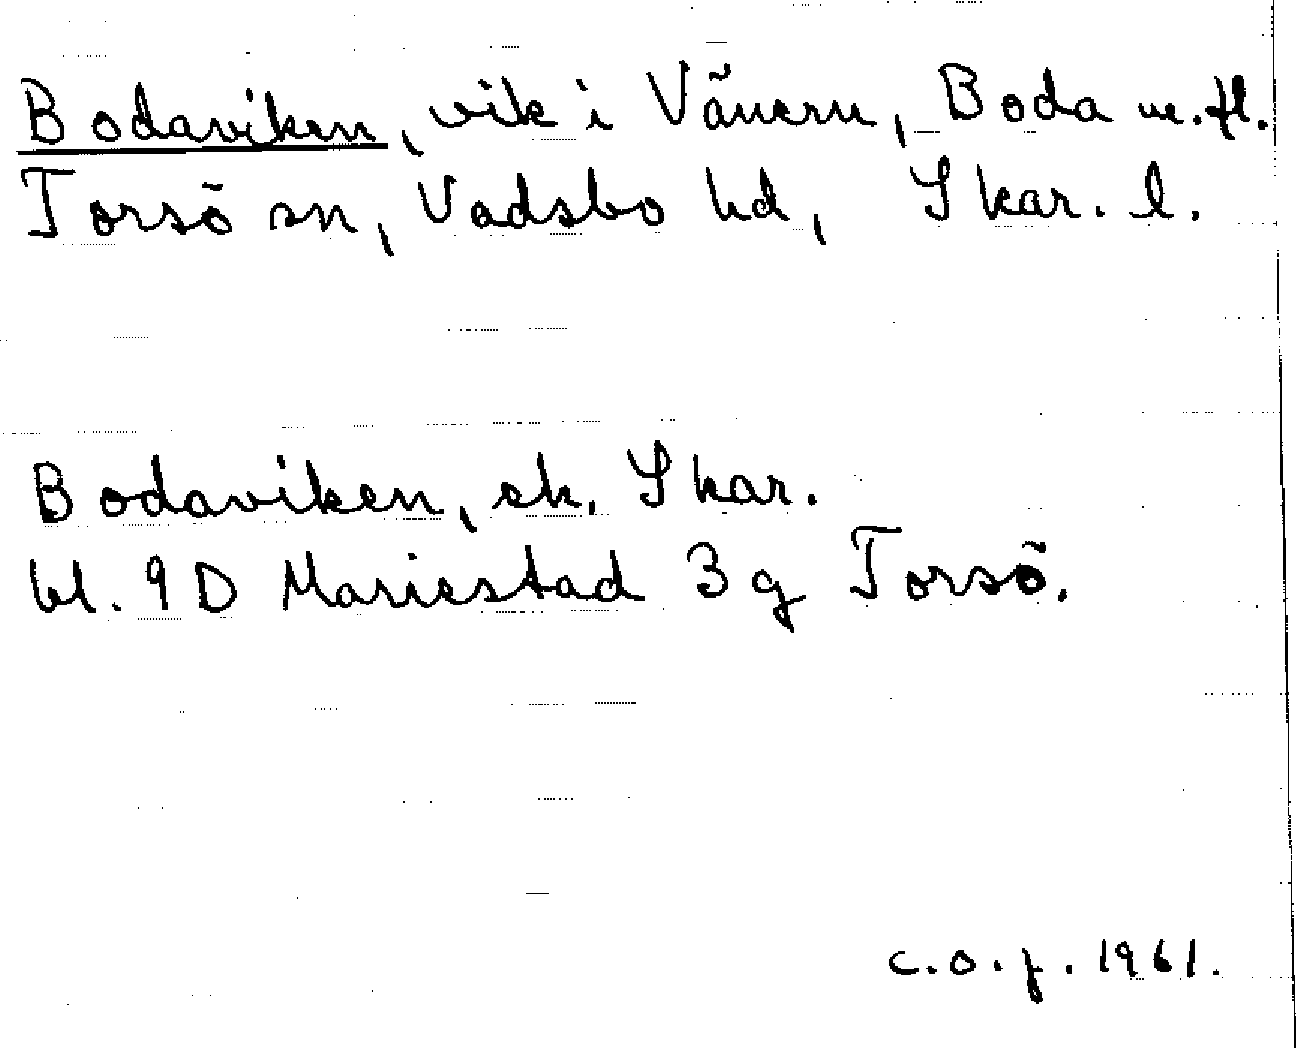 Bodaviken, vik i Vänern, Boda m.fl.
Torsö sn, Vadsbo hd, Skar. l.
Bodaviken, ek. Skar.
bl. 9D Mariestad 3g Torsö.
C.O.f. 1961.